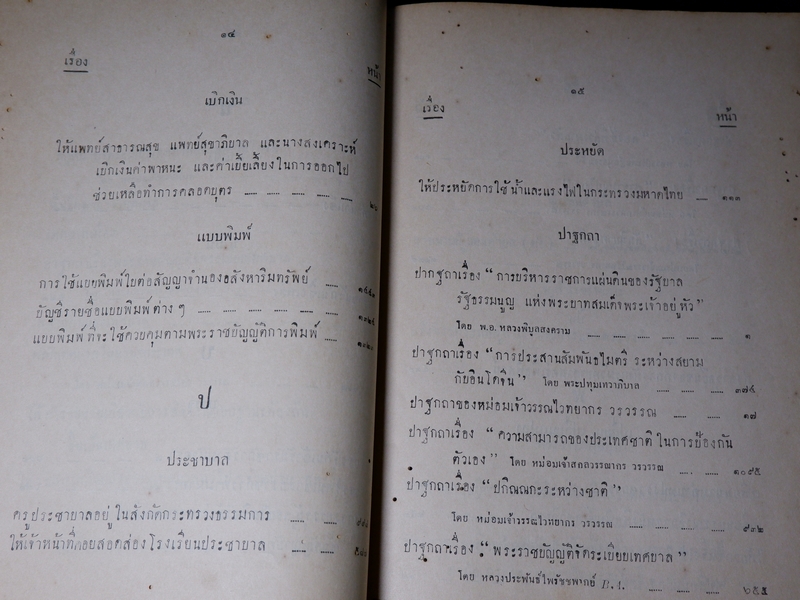 ๑๔
เรื่อง
หน้า
เบิกเงิน
ให้แพทย์สาธารณสุข แพทย์สุขาภิบาล และนางสงเคราะห์
เบิกเงินค่าพาหนะ และค่าเบี้ยเลี้ยงในการออกไป
ช่วยเหลือทำการคลอดบุตร
แบบพิมพ์
การใช้แบบพิมพ์ใบต่อสัญญาจำนองอสังหาริมทรัพย์
บัญชีรายชื่อแบบพิมพ์ต่าง ๆ
แบบพิมพ์ที่จะใช้ควบคุมตามพระราชบัญญัติการพิมพ์
ป
ประชาบาล
ครูประชาบาลอยู่ในสังกัดกระทรวงธรรมการ
ให้เจ้าหน้าที่คอยสอดส่องโรงเรียนประชาบาล
๑๕
เรื่อง
หน้า
ประหยัด
ให้ประหยัดการใช้น้ำและแรงไฟในกระทรวงมหาดไทย ๑๑๓
ปาฐกถา
ปากฐถาเรื่อง “ การบริหารราชการแผ่นดินของรัฐบาล
รัฐธรรมนูญ แห่งพระบาทสมเด็จพระเจ้าอยู่หัว ”
โดย พ.อ. หลวงพิบูลสงคราม ๑
ปาฐกถาเรื่อง “ การประสานสัมพันธไมตรี ระหว่างสยาม
กับอินโดจีน ” โดย พระปทุมเทวาภิบาล ๓๗๕
ปาฐกถาของหม่อมเจ้าวรรณไวทยากร วรวรรณ ๑๗
ปาฐกถาเรื่อง “ ความสามารถของประเทศชาติ ในการป้องกัน
ตัวเอง ” โดย หม่อมเจ้าสกลวรรณากร วรวรรณ ๑๐๙๕
ปาฐกถาเรื่อง “ ปกิณณกะระหว่างชาติ ”
โดย หม่อมเจ้าวรรณไวทยากร วรวรรณ ๙๓๒
ปาฐกถาเรื่อง “ พระราชบัญญัติจัดระเบียบเทศบาล ”
โดย หลวงประพันธ์ไพรัชชพากย์ B. I. ๖๕๕